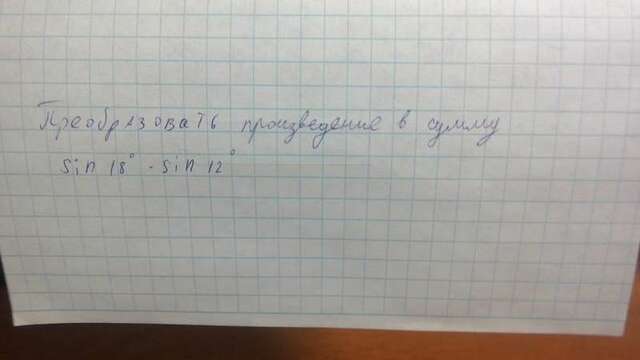 Преобразовать произведение в сумму
Sin 18° · Sin 12°